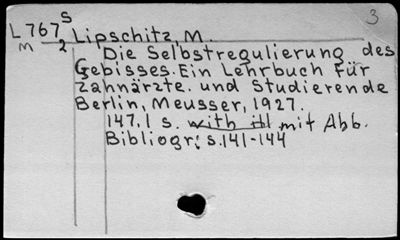 3
L767 s
m 2 Lipschitz, M.
Die Selbstregulierung des
Gebisses. Ein Lehrbuch für
Zahnärzte. und Studierende
Berlin, Meusser, 1927.
147, 1 s. with ill mit Abb.
Bibliogr: s. 141-144